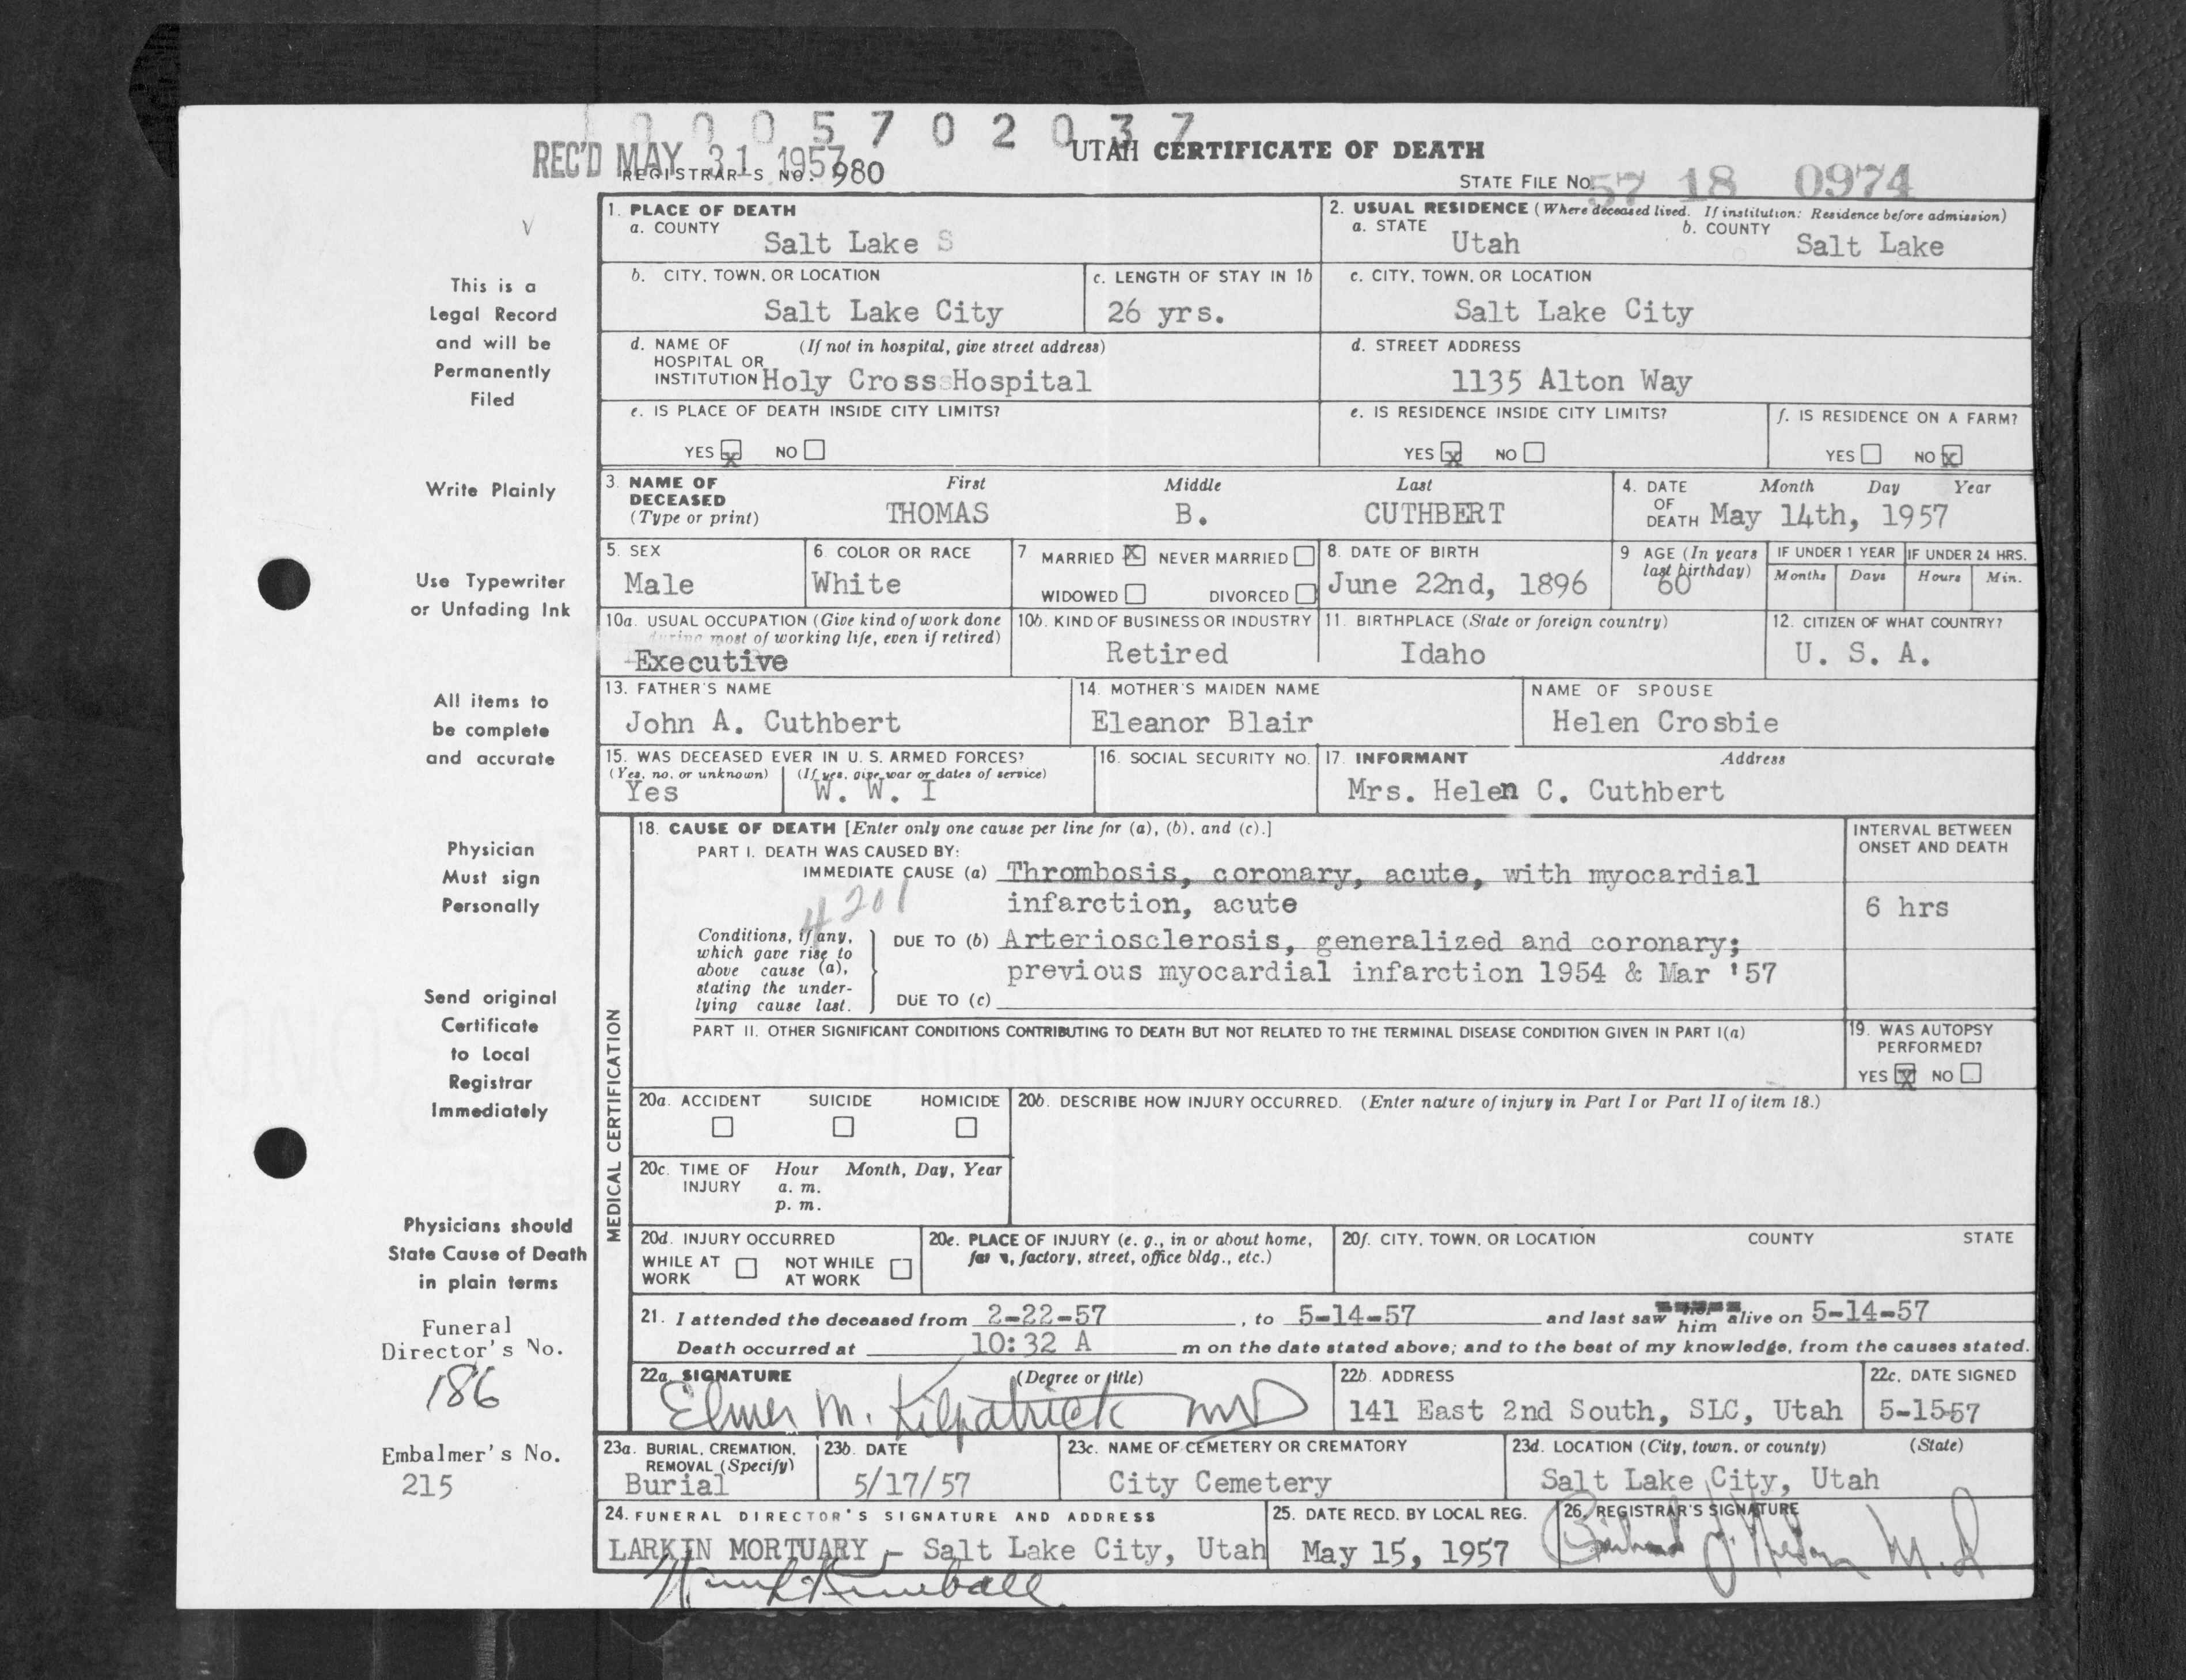 0005702037
REC'D MAY 31 1957
UTAH CERTIFICATE OF DEATH
REGISTRAR'S NO. 980
STATE FILE NO. 57 18 0974
This is a
Legal Record
and will be
Permanently
Filed
Write Plainly
Use Typewriter
or Unfading Ink
All items to
be complete
and accurate
Physician
Must sign
Personally
Send original
Certificate
to Local
Registrar
Immediately
Physicians should
State Cause of Death
in plain terms
Funeral
Director's No.
186
Embalmer's No.
215
1. PLACE OF DEATH
a. COUNTY
Salt Lake S
2. USUAL RESIDENCE (Where deceased lived. If institution: Residence before admission)
a. STATE
Utah
b. COUNTY
Salt Lake
b. CITY, TOWN, OR LOCATION
Salt Lake City
c. LENGTH OF STAY IN 1b
26 yrs.
c. CITY, TOWN, OR LOCATION
Salt Lake City
d. NAME OF (If not in hospital, give street address)
HOSPITAL OR
INSTITUTION Holy Cross Hospital
d. STREET ADDRESS
1135 Alton Way
e. IS PLACE OF DEATH INSIDE CITY LIMITS?
YES X NO
e. IS RESIDENCE INSIDE CITY LIMITS?
YES X NO
f. IS RESIDENCE ON A FARM?
YES NO X
3. NAME OF
DECEASED
(Type or print)
First Middle Last
THOMAS B. CUTHBERT
4. DATE
OF
DEATH
Month Day Year
May 14th, 1957
5. SEX
Male
6. COLOR OR RACE
White
7. MARRIED X NEVER MARRIED
WIDOWED DIVORCED
8. DATE OF BIRTH
June 22nd, 1896
9 AGE (In years
last birthday)
60
IF UNDER 1 YEAR
Months Days
IF UNDER 24 HRS.
Hours Min.
10a. USUAL OCCUPATION (Give kind of work done
during most of working life, even if retired)
Executive
10b. KIND OF BUSINESS OR INDUSTRY
Retired
11. BIRTHPLACE (State or foreign country)
Idaho
12. CITIZEN OF WHAT COUNTRY?
U. S. A.
13. FATHER'S NAME
John A. Cuthbert
14. MOTHER'S MAIDEN NAME
Eleanor Blair
NAME OF SPOUSE
Helen Crosbie
15. WAS DECEASED EVER IN U. S. ARMED FORCES?
(Yes, no, or unknown) (If yes, give war or dates of service)
Yes W. W. I
16. SOCIAL SECURITY NO.
17. INFORMANT Address
Mrs. Helen C. Cuthbert
MEDICAL CERTIFICATION
18. CAUSE OF DEATH [Enter only one cause per line for (a), (b), and (c).]
PART I. DEATH WAS CAUSED BY:
IMMEDIATE CAUSE (a) Thrombosis, coronary, acute, with myocardial
infarction, acute
4201
INTERVAL BETWEEN
ONSET AND DEATH
6 hrs
Conditions, if any,
which gave rise to
above cause (a),
stating the under-
lying cause last.
DUE TO (b) Arteriosclerosis, generalized and coronary;
previous myocardial infarction 1954 & Mar '57
DUE TO (c)
PART II. OTHER SIGNIFICANT CONDITIONS CONTRIBUTING TO DEATH BUT NOT RELATED TO THE TERMINAL DISEASE CONDITION GIVEN IN PART I(a)
19. WAS AUTOPSY
PERFORMED?
YES X NO
20a. ACCIDENT SUICIDE HOMICIDE
20b. DESCRIBE HOW INJURY OCCURRED. (Enter nature of injury in Part I or Part II of item 18.)
20c. TIME OF Hour Month, Day, Year
INJURY a. m.
p. m.
20d. INJURY OCCURRED
WHILE AT NOT WHILE
WORK AT WORK
20e. PLACE OF INJURY (e. g., in or about home,
farm, factory, street, office bldg., etc.)
20f. CITY, TOWN, OR LOCATION COUNTY STATE
21. I attended the deceased from 2-22-57, to 5-14-57 and last saw him alive on 5-14-57
Death occurred at 10:32 A m on the date stated above; and to the best of my knowledge, from the causes stated.
22a. SIGNATURE (Degree or title)
Elmer M. Kilpatrick MD
22b. ADDRESS
141 East 2nd South, SLC, Utah
22c. DATE SIGNED
5-15-57
23a. BURIAL, CREMATION,
REMOVAL (Specify)
Burial
23b. DATE
5/17/57
23c. NAME OF CEMETERY OR CREMATORY
City Cemetery
23d. LOCATION (City, town, or county) (State)
Salt Lake City, Utah
24. FUNERAL DIRECTOR'S SIGNATURE AND ADDRESS
LARKIN MORTUARY - Salt Lake City, Utah
Kimball
25. DATE RECD. BY LOCAL REG.
May 15, 1957
26. REGISTRAR'S SIGNATURE
M.D